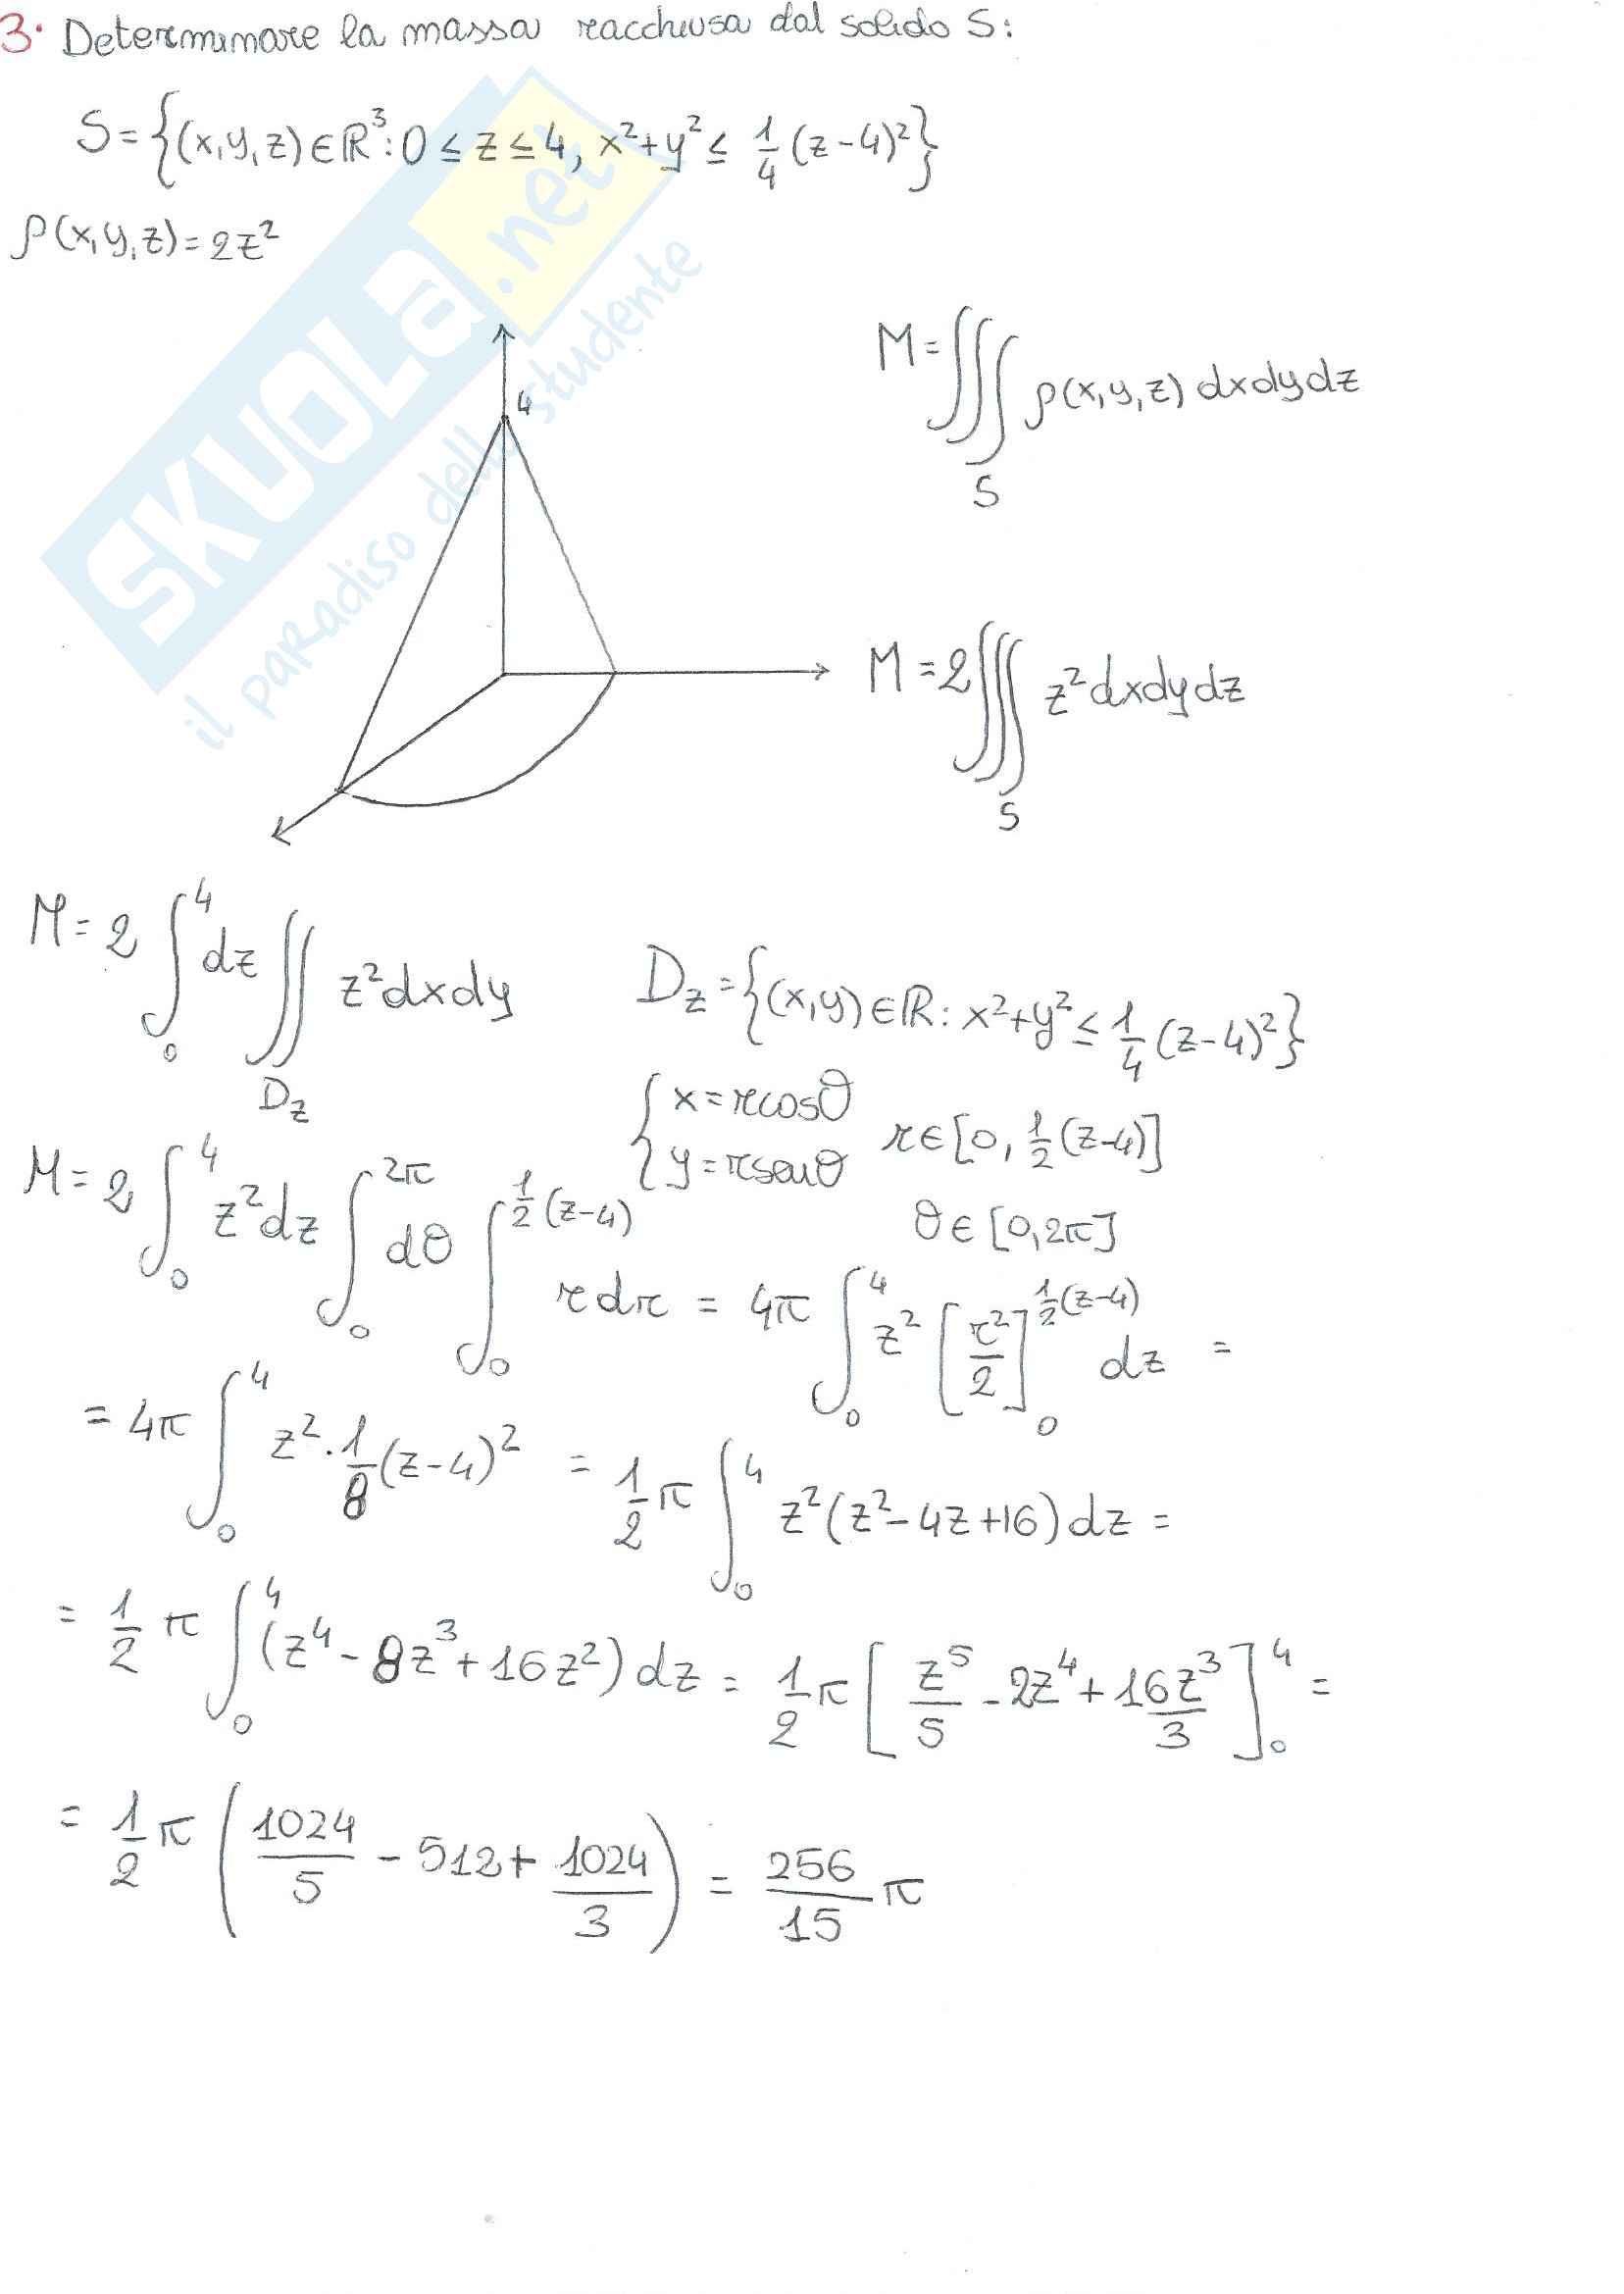 3. Determinare la massa racchiusa dal solido S:
S = {(x,y,z) ∈ ℝ³: 0 ≤ z ≤ 4, x²+y² ≤ 1/4 (z-4)²}
ρ(x,y,z) = 2z²
SKUOLA.net
il paradiso dello studente
4
M = ∭_S ρ(x,y,z) dxdydz
M = 2 ∭_S z² dxdydz
M = 2 ∫_0^4 dz ∬_{D_z} z² dxdy   D_z = {(x,y) ∈ ℝ: x²+y² ≤ 1/4 (z-4)²}
{ x = r cosθ
y = r senθ   r ∈ [0, 1/2 (z-4)]
θ ∈ [0, 2π]
M = 2 ∫_0^4 z² dz ∫_0^{2π} dθ ∫_0^{1/2 (z-4)} r dr = 4π ∫_0^4 z² [r²/2]_0^{1/2 (z-4)} dz =
= 4π ∫_0^4 z² · 1/8 (z-4)² = 1/2 π ∫_0^4 z² (z² - 4z + 16) dz =
= 1/2 π ∫_0^4 (z⁴ - 8z³ + 16z²) dz = 1/2 π [z⁵/5 - 2z⁴ + 16z³/3]_0^4 =
= 1/2 π (1024/5 - 512 + 1024/3) = 256/15 π